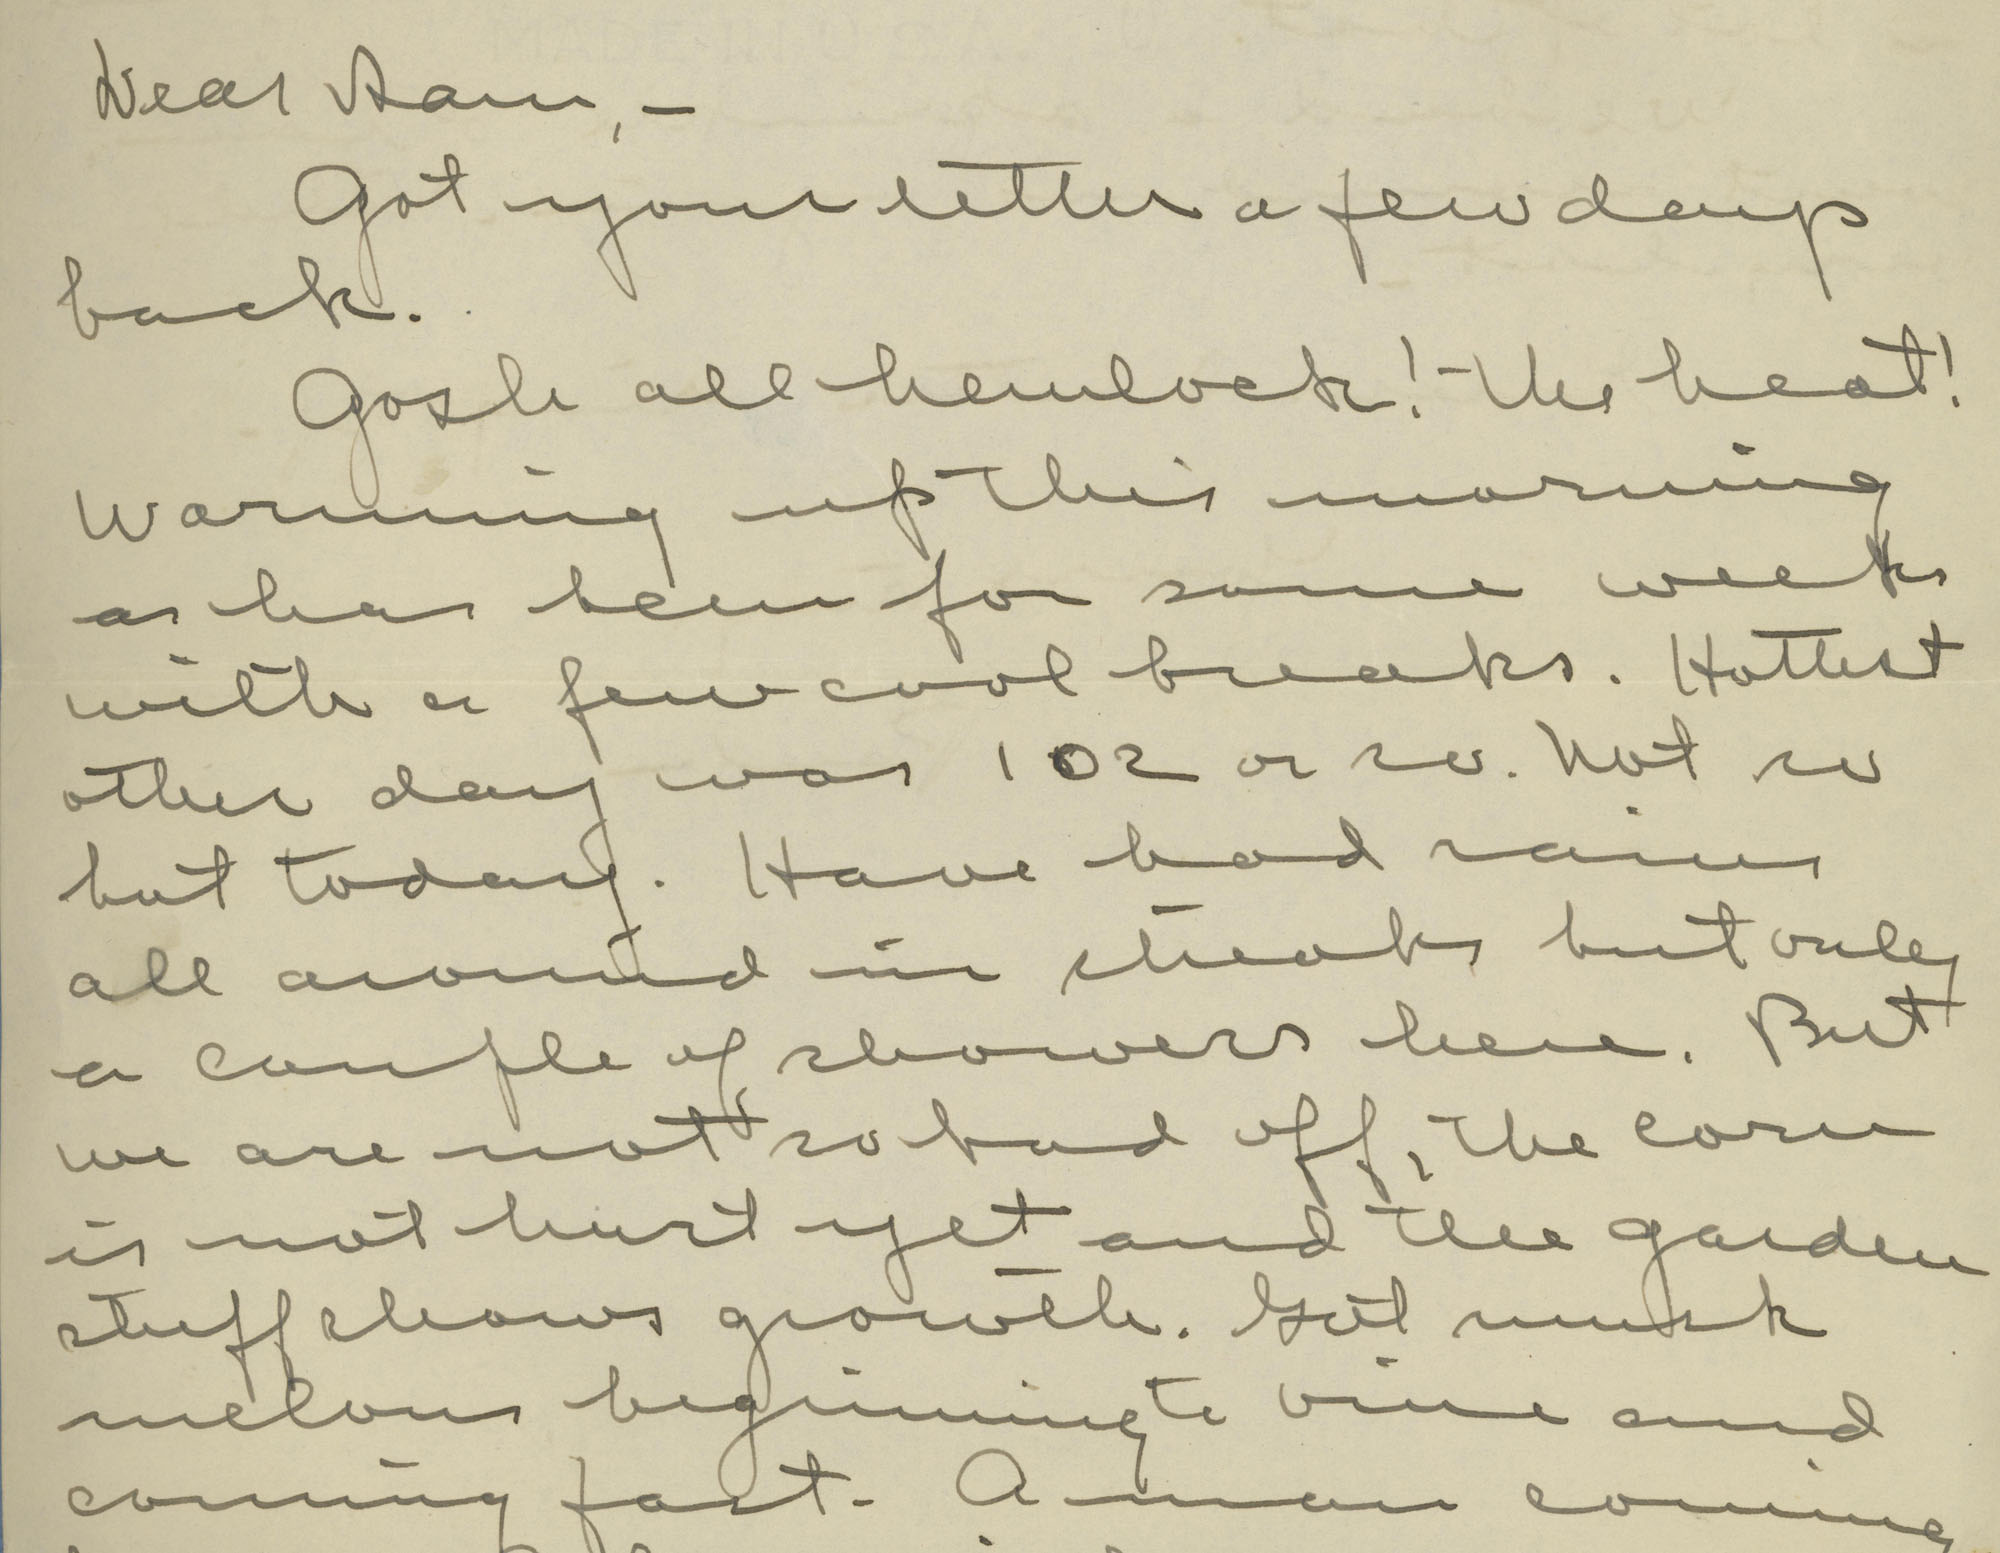 Dear Sam,—
Got your letter a few days
back.
Gosh all hemlock! The heat!
Warming up this morning
as has been for some weeks
with a few cool breaks. Hottest
other day was 102 or so. Not so
but today. Have had rains
all around in streaks but only
a couple of showers here. But
we are not so bad off, the corn
is not hurt yet and the garden
stuff shows growth. Got musk
melons beginning to vine and
coming fast. A man coming